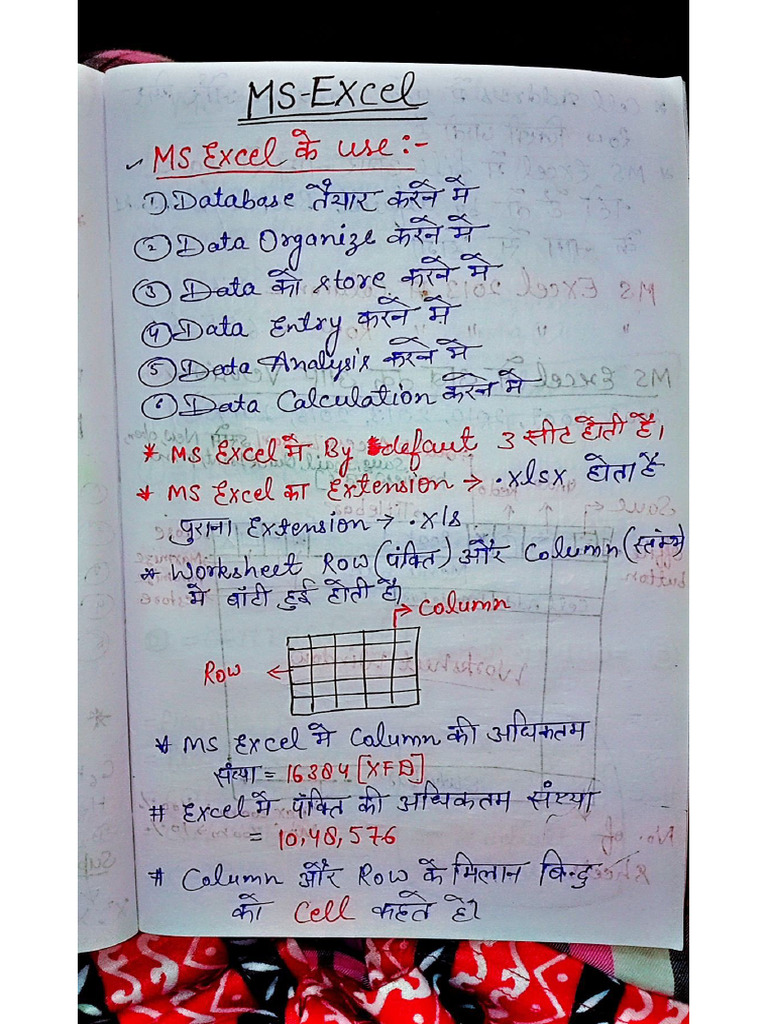 MS-Excel
MS Excel के use:-
① Database तैयार करने में
② Data Organize करने में
③ Data को store करने में
④ Data Entry करने में
⑤ Data Analysis करने में
⑥ Data Calculation करने में
* MS Excel में By defaut 3 सीट होती है।
* MS Excel का Extension → .xlsx होता है
पुराना Extension → .xls
* Worksheet Row (पंक्ति) और Column (स्तंम्भ)
में बांटी हुई होती है।
Column
Row
* MS Excel में Column की अधिकतम
संख्या = 16384 [XFD]
# Excel में पंक्ति की अधिकतम संख्या
= 10,48,576
# Column और Row के मिलान बिन्दु
को Cell कहते है।